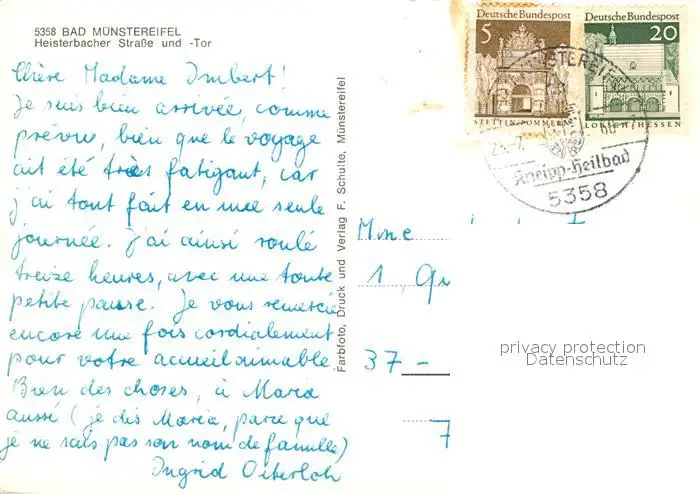 5358 BAD MÜNSTEREIFEL
Heisterbacher Straße und -Tor
Chère Madame Imbert!
Je suis bien arrivée, comme
prévu, bien que le voyage
ait été très fatigant, car
j'ai tout fait en une seule
journée. j'ai ainsi roulé
treize heures, avec une toute
petite pause. Je vous remercie
encore une fois cordialement
pour votre accueil aimable.
Bien des choses, à Maria
aussi (je dis Maria, parce que
je ne sais pas son nom de famille)
Ingrid Oeterloh
Farbfoto, Druck und Verlag F. Schulte, Münstereifel
Deutsche Bundespost
5
STETTIN/POMMERN
Deutsche Bundespost
20
LORSCH/HESSEN
MÜNSTEREIFEL
Kneipp-Heilbad
5358
Mme
1,
37-
7
privacy protection
Datenschutz